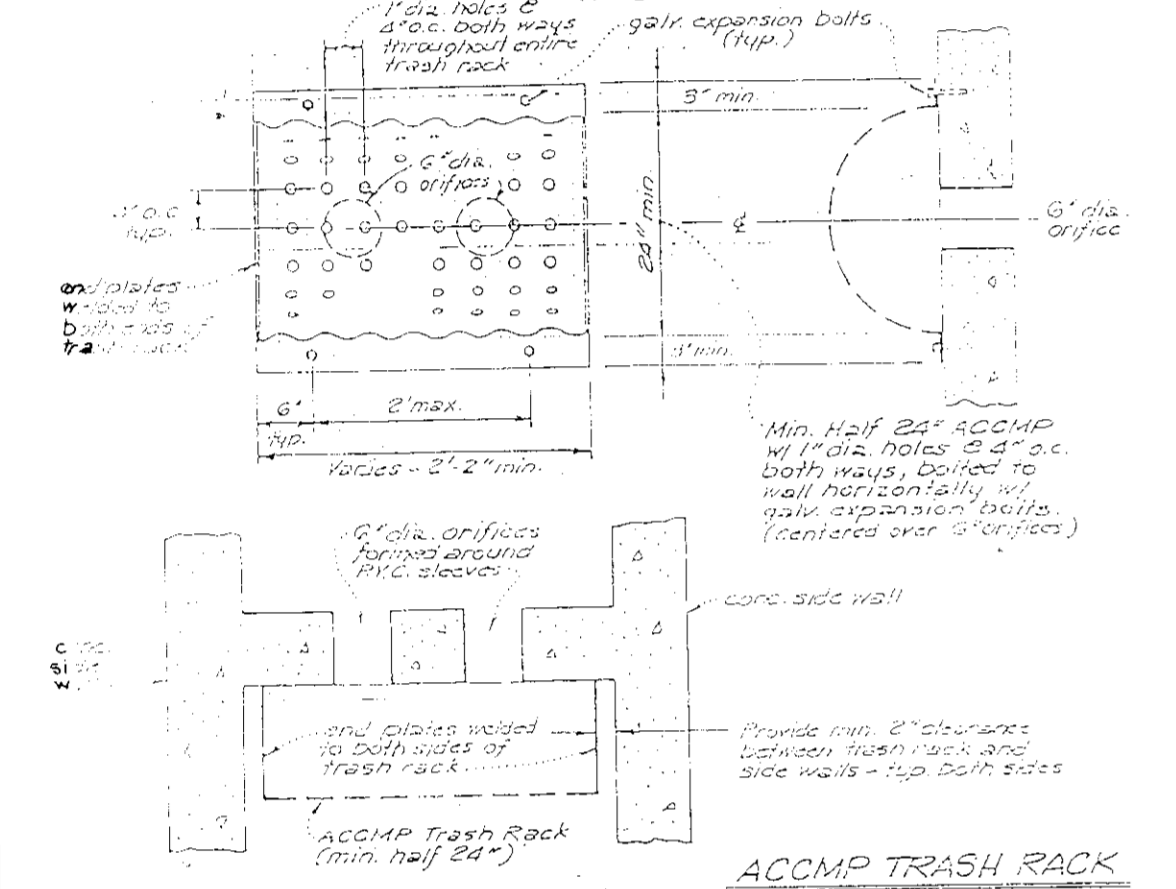 1" dia. holes @
4" o.c. both ways
throughout entire
trash rack
galv. expansion bolts
(typ.)
3" min.
6" dia.
orifices
o.c.
typ.
24" min.
℄
6" dia.
orifice
end plates
welded to
both ends of
trash rack
3" min.
6"
typ.
2' max.
Varies - 2'-2" min.
Min. Half 24" ACCMP
w/ 1" dia. holes @ 4" o.c.
both ways, bolted to
wall horizontally w/
galv. expansion bolts.
(centered over 6" orifices)
6" dia. orifices
formed around
P.V.C. sleeves
conc. side wall
c
si
w
end plates welded
to both sides of
trash rack
Provide min. 2" clearance
between trash rack and
side walls - typ. both sides
ACCMP Trash Rack
(min. half 24")
ACCMP TRASH RACK